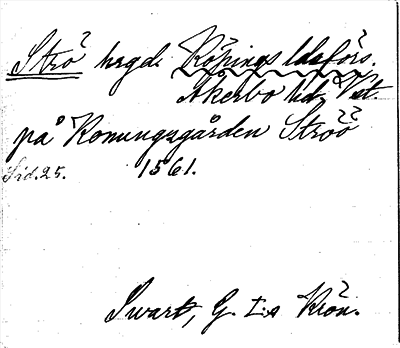 Strö hrgd. Köpings ldsförs.
Åkerbo hd. Vst.
på Konungsgården Ströö
Sid. 25. 1561.
Swart, G. I:s Krön.